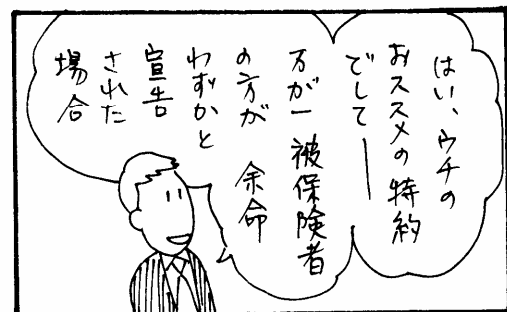 はい、ウチの
おススメの特約
でして──
万が一被保険者
の方が余命
わずかと
宣告
された
場合